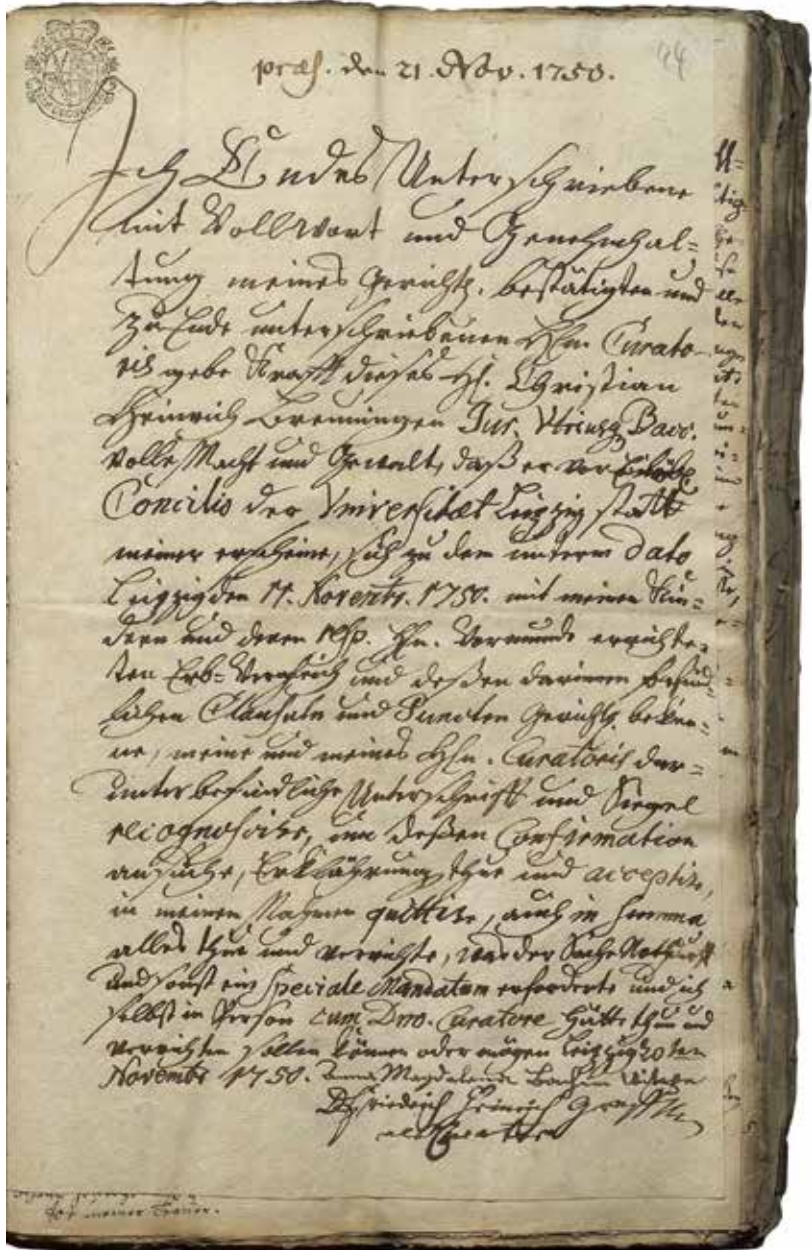 præs. den 21. Nov. 1750.
94
Ich Endes Unterschriebene
mit Vollwort und Genehmhal=
tung meines Gerichtl. bestätigten und
zu Ende unterschriebenen Hhn. Curato-
ris gebe Krafft dieses H. Christian
Heinrich Breuningen Jur. Utriusq Bacc.
volle Macht und Gewalt, daß er vor
Concilio der Universitæt Leipzig statt
meiner erscheine, sich zu dem unterm dato
Leipzig den 11. Novembr. 1750. mit meinen Kin=
dern und deren resp. Hn. Vormunde errichte=
ten Erb=Vergleich und deßen darinnen befind=
lichen Clausuln und Puncten Gerichtl. beken=
ne, meine und meines Hhn. Curatoris dar=
unter befindliche Unterschrifft und Siegel
recognoscire, um deßen Confirmation
ansuche, Erklährung thue und acceptire,
in meinen Nahmen quittire, auch in Summa
alles thue und verrichte, was der Sache Nothdurfft
und sonst ein Speciale Mandatum erforderte und ich
selbst in Person cum Dno. Curatore hätte thun und
verrichten sollen können oder mögen Leipzig 20ten
Novembr 1750. Anna Magdalena Bachin Witwe
D. Friedrich Heinrich Graff
als Curator
meiner